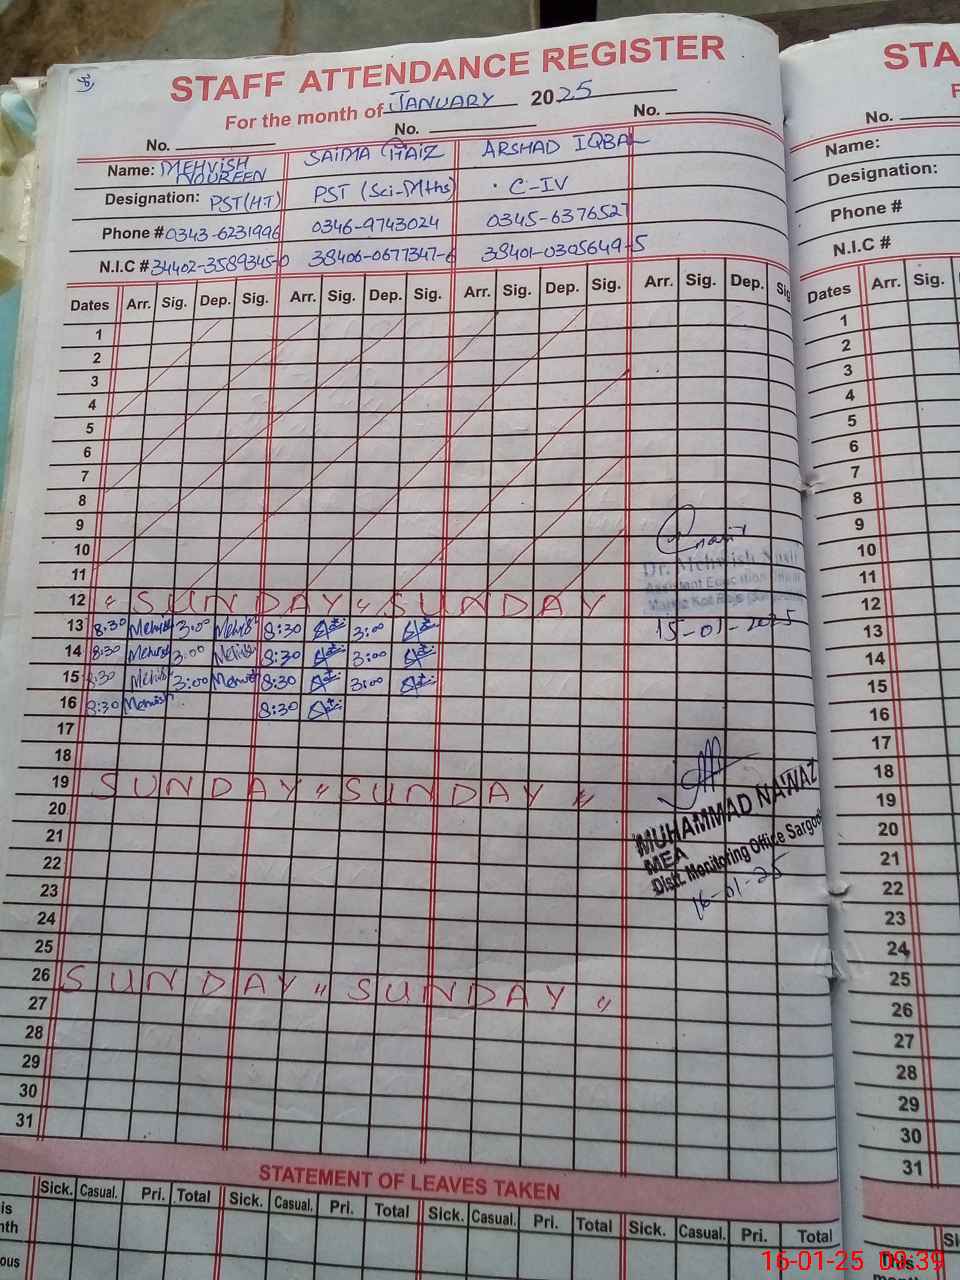 STAFF ATTENDANCE REGISTER
For the month of JANUARY 2025
No. No. No.
Name: MEHVISH NOUREEN SAIMA ARSHAD IQBAL
Designation: PST(HT) PST (Sci-Mths) C-IV
Phone # 0343-6231996 0346-9743024 0345-6376527
N.I.C # 34402-3589345-0 38406-0677347-6 38401-0305649-5
Dates Arr. Sig. Dep. Sig. Arr. Sig. Dep. Sig. Arr. Sig. Dep. Sig. Arr. Sig. Dep. Sig
1
2
3
4
5
6
7
8
9
10
11
12 " SUNDAY " SUNDAY
13 8:30 Mehvish 3:00 Mehvish 8:30 3:00
14 8:30 Mehvish 3:00 Mehvish 8:30 3:00
15 8:30 Mehvish 3:00 Mehvish 8:30 3:00
16 8:30 Mehvish 8:30
17
18
19 SUNDAY " SUNDAY "
20
21
22
23
24
25
26 SUNDAY " SUNDAY "
27
28
29
30
31
Dr. Mehwish
Assistant Education
15-01-2025
MUHAMMAD NAWAZ
MEA
Distt. Monitoring Office Sargod
16-01-25
STATEMENT OF LEAVES TAKEN
Sick. Casual. Pri. Total Sick. Casual. Pri. Total Sick. Casual. Pri. Total Sick. Casual. Pri. Total
is
nth
ous
STA
F
No.
Name:
Designation:
Phone #
N.I.C #
Dates Arr. Sig.
1
2
3
4
5
6
7
8
9
10
11
12
13
14
15
16
17
18
19
20
21
22
23
24
25
26
27
28
29
30
31
Si
This
16-01-25 09:39